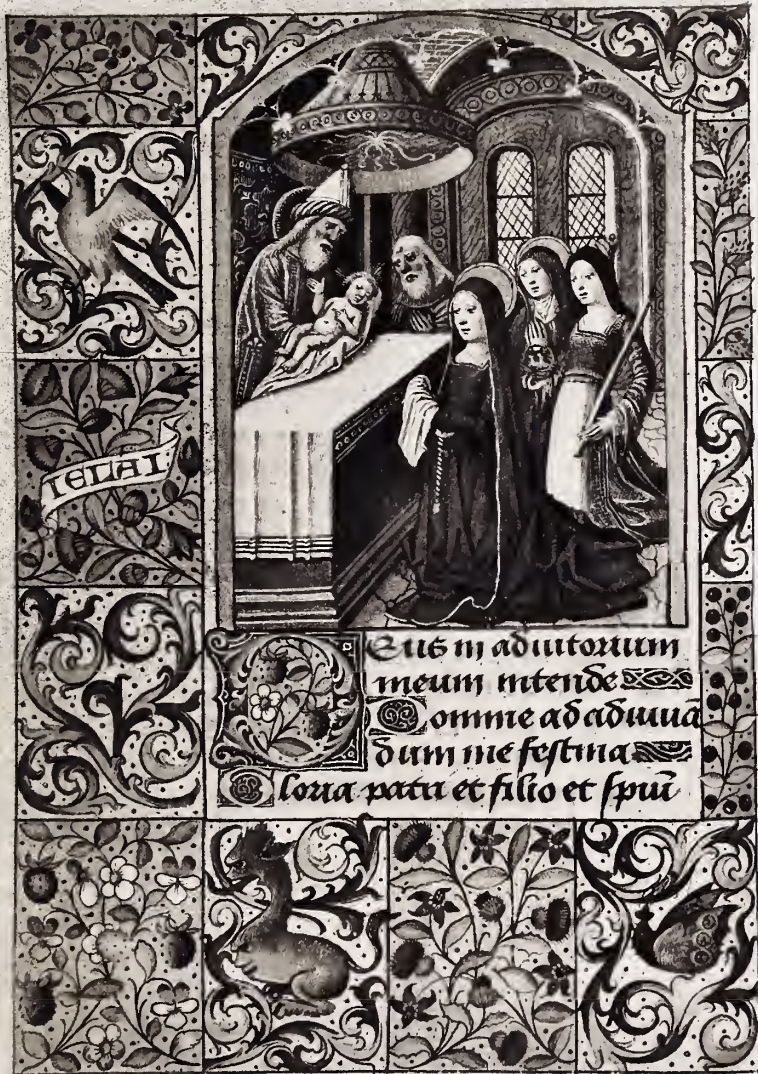 IELAI
Deus in adiutorium
meum intende
Domine ad adiuuā
dum me festina
Gloria patri et filio et spiū